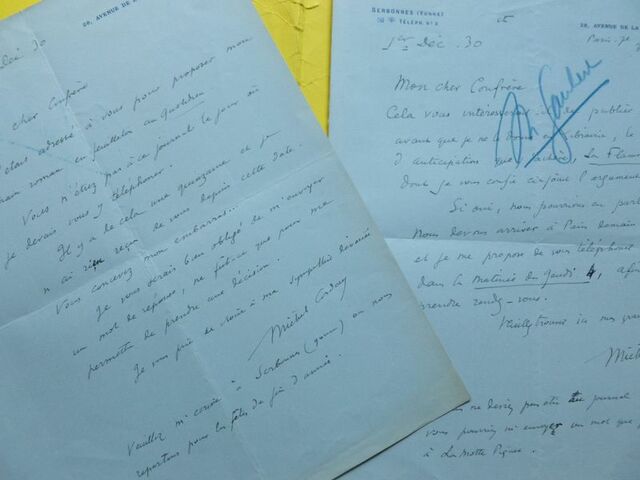 28, AVENUE DE
Déc 30
cher Confrère
étais adressé à vous pour proposer mon
roman en feuilleton au Quotidien
Vous n'étiez pas à ce journal le jour où
je devais vous y téléphoner.
Il y a de cela une quinzaine et je
n'ai rien reçu de vous depuis cette date.
Vous concevez mon embarras...
Je vous serais bien obligé de m'envoyer
un mot de réponse, ne fût-ce que pour me
permettre de prendre une décision.
Je vous prie de croire à ma sympathie dévouée
Michel Corday
Veuillez m'écrire à Serbonnes (Yonne) où nous
repartons pour les fêtes de fin d'année.
SERBONNES (YONNE)
TÉLÉPH. Nº 2
et
28, AVENUE DE LA
Paris, 7e
1er Déc. 30
Mon cher Confrère
Cela vous intéresserait de publier
avant que je ne librairie, le
d'anticipation que La Flam
dont je vous confie ci-joint l'argument
Si oui, nous pourrions en parl
Nous devons arriver à Paris demain
et je me propose de vous téléphoner
dans la matinée du jeudi 4, afin
prendre rendez-vous.
Veuillez trouver ici mes gra
Mich
ne désirez pas être au journal
vous pourriez m'envoyer un mot que
à La Motte Picquet.